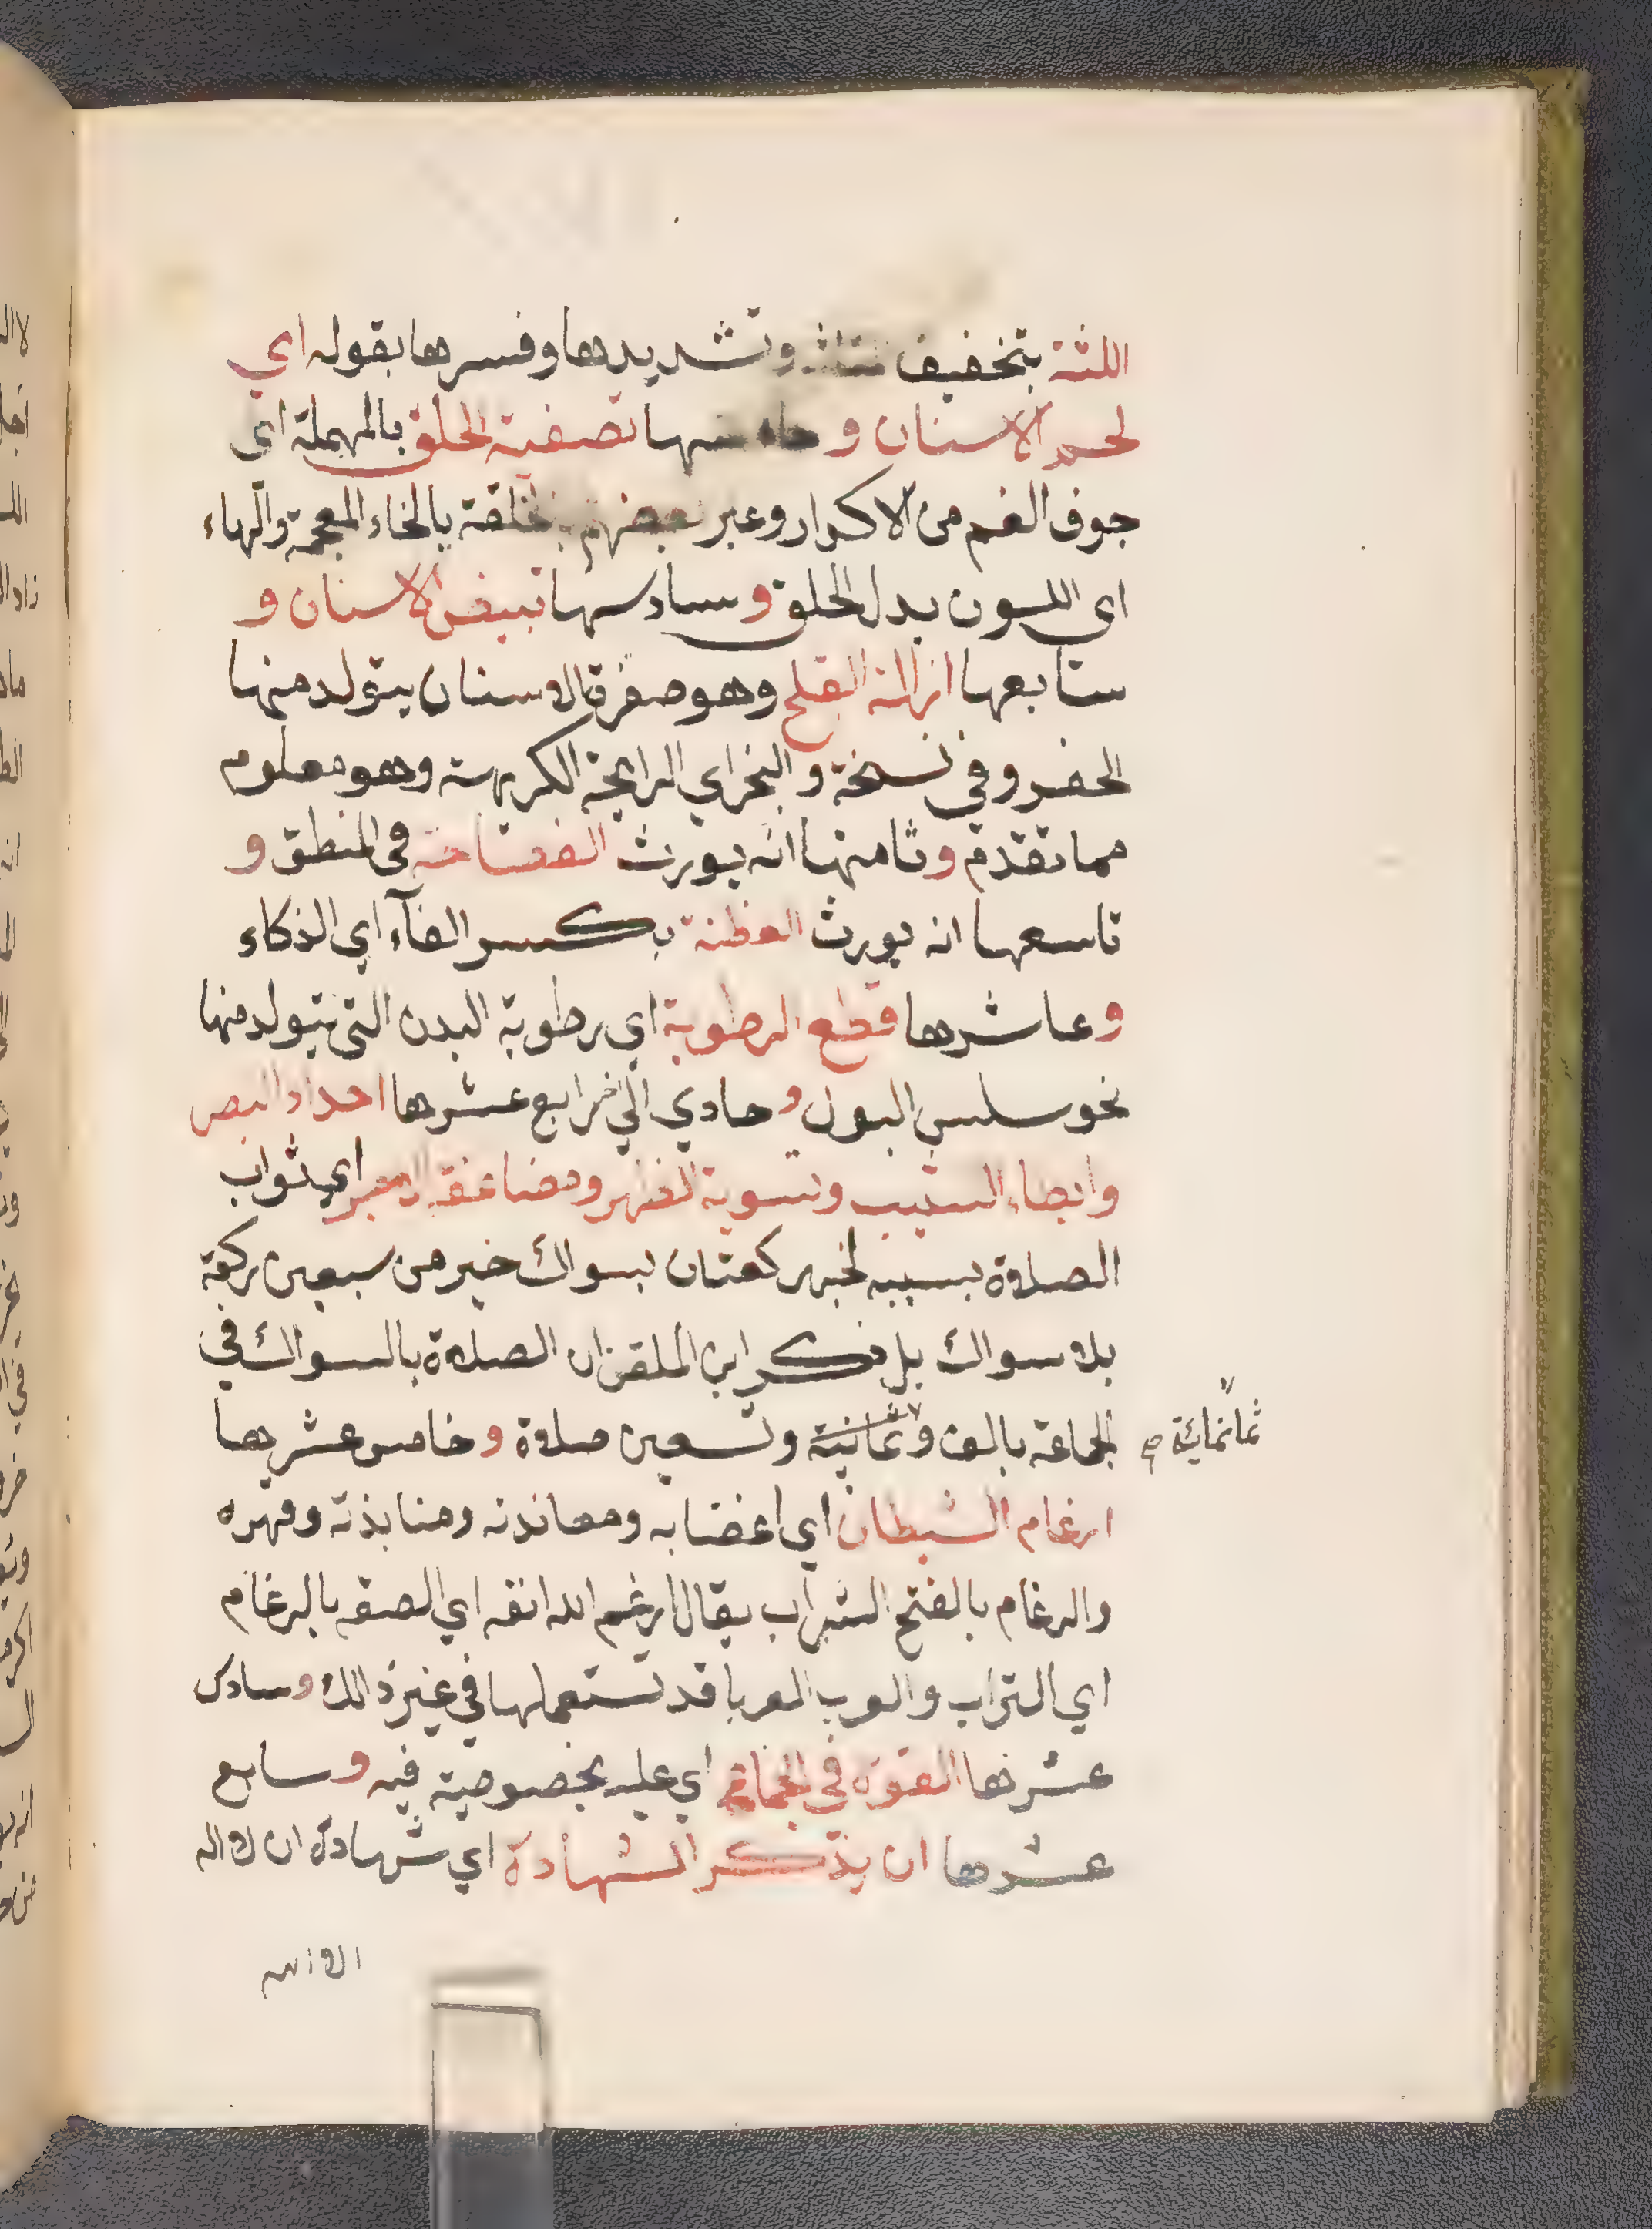 اللثة بتخفيف وتشديدها وفسرها بقوله اي
لحم الاسنان و خامسها تصفية الحلق بالمهملة اى
جوف الفم من الاكدار وعبر بعضهم بالخلقة بالخاء المعجمة والهاء
اى اللون بدل الحلق وسادسها تبيض الاسنان و
سابعها ازالة القلح وهو صفرة الاسنان يتولد منها
الحفر وفي نسخة والبخر اي الرايحة الكريهة وهو معلوم
مما تقدم وثامنها انه يورث الفصاحة فى المنطق و
تاسعها انه يورث الفطنة بكسر الفآء اي الذكاء
وعاشرها قطع الرطوبة اي رطوبة البدن التى يتولد منها
نحو سلس البول وحادي الي رابع عشرها احداد البصر
وابطاء الشيب وتسوية الظهر ومضاعفة الاجر اي ثواب
الصلاة بسببه لخبر ركعتان بسواك خير من سبعين ركعة
بلا سواك بل ذكر ابن الملقن ان الصلاة بالسواك في
الجماعة بالف وثمانية وتسعين صلاة وخامس عشرها
ثمانمائة صح
ارغام الشيطان اي اغضابه ومعاندته ومنابذته وقهره
والرغام بالفتح التراب يقال ارغم الله انفه اي الصقه بالرغام
اي التراب والعرب العربا قد تستعملها في غير ذالك وسادس
عشرها القوة في الجماع اي عليه بخصوصية فيه وسابع
عشرها ان يذكر الشهادة اي شهادة ان لا اله
الا الله